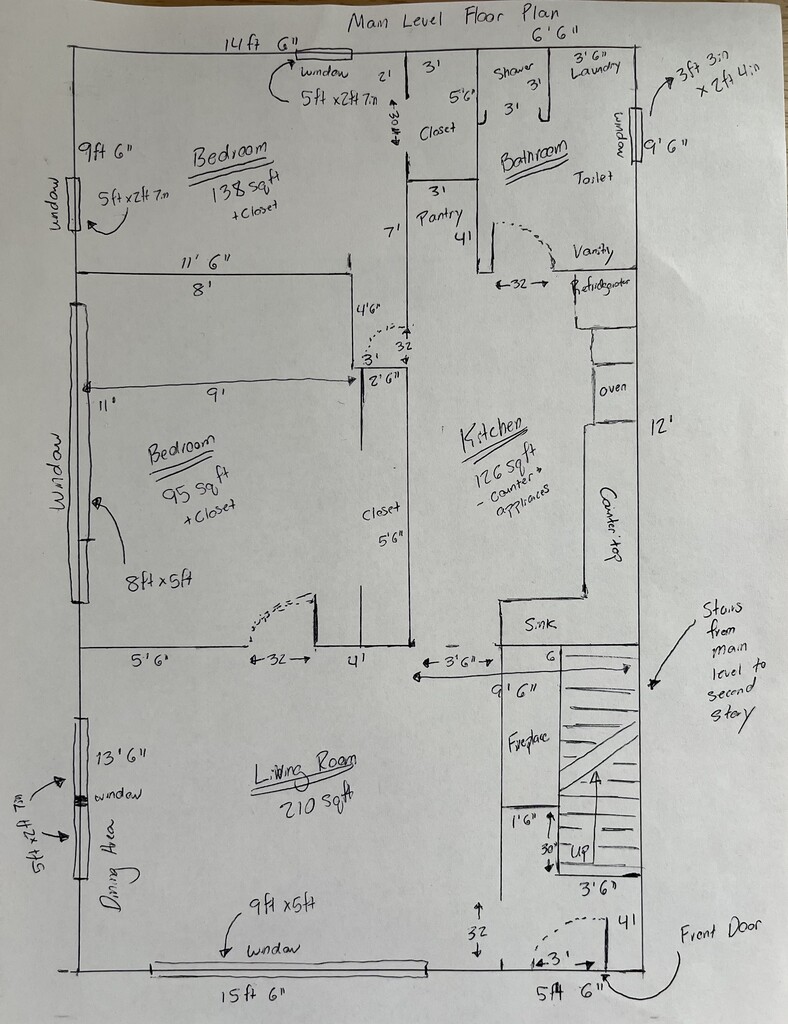 Main Level Floor Plan
14ft 6"
6' 6"
window
5ft x 2ft 7in
2'
3'
5'6"
Shower
3'
3'
3'6"
Laundry
3ft 3in
x 2ft 4in
window
9'6"
30"
Closet
9ft 6"
Bedroom
138 sqft
+ Closet
Bathroom
Toilet
window
5ft x 2ft 7in
3'
Pantry
4'
7'
Vanity
32
Refridgerator
11' 6"
8'
4'6"
32
3'
2'6"
11'
9'
oven
12'
Window
Bedroom
95 sqft
+ Closet
Kitchen
126 sqft
- counter +
appliaces
Closet
5'6"
Counter top
8ft x 5ft
Sink
Stairs
from
main
level to
second
story
5'6"
32
4'
3'6"
6
9'6"
Fireplace
13'6"
window
5ft x 2ft 7in
Living Room
210 sqft
Dining Area
1'6"
30"
UP
3'6"
9ft x 5ft
window
32
3'
4'
Front Door
15ft 6"
5ft 6"